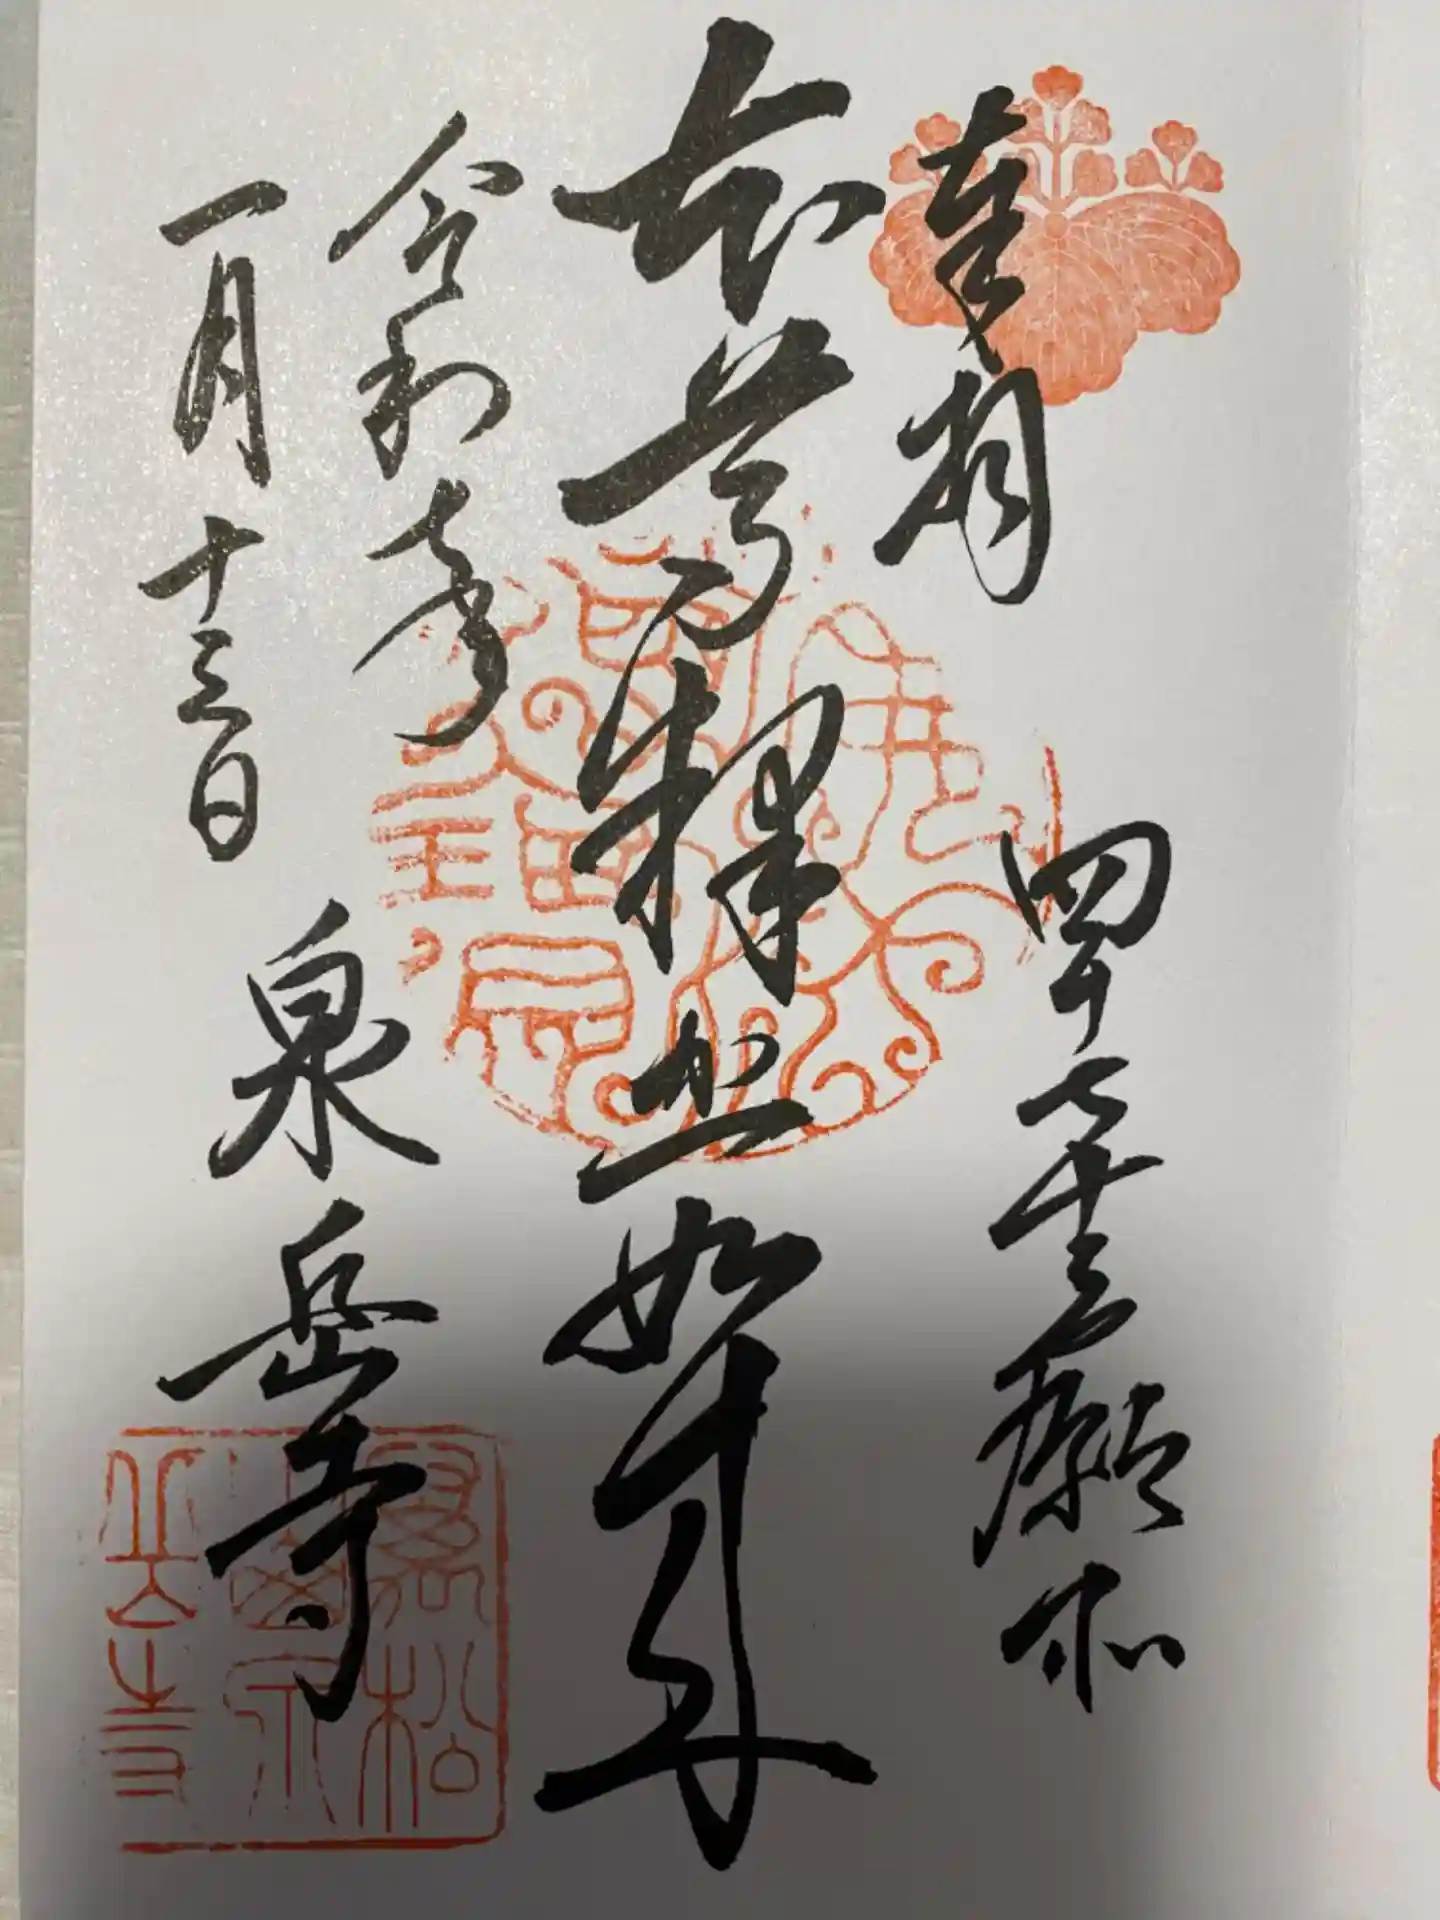 奉拝
四十七士願所
本尊釋迦如来
令和年
一月十三日
泉岳寺
佛法僧寶
萬松山泉岳寺